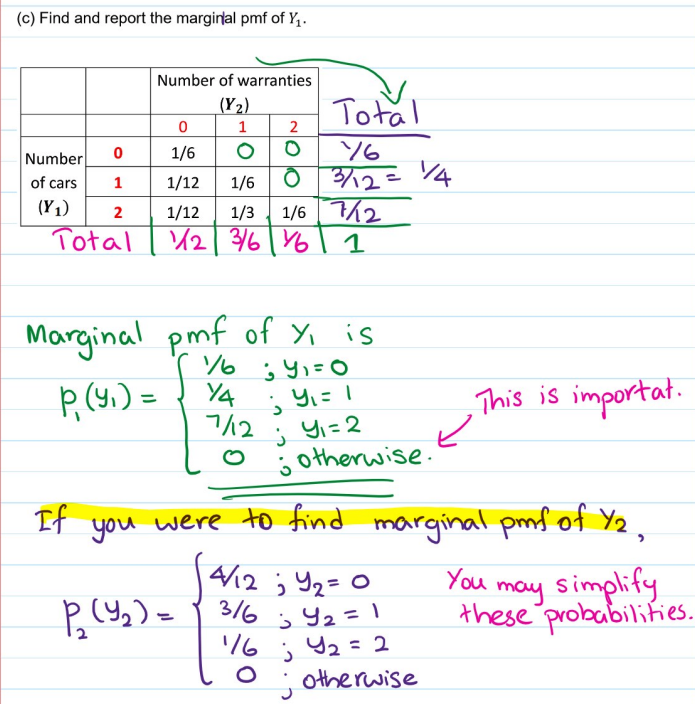 (c) Find and report the marginal pmf of Y₁.
Number of warranties
(Y₂)
Total
0 1 2
Number of cars (Y₁)
0 1/6 0 0 1/6
1 1/12 1/6 0 3/12 = 1/4
2 1/12 1/3 1/6 7/12
Total 1/2 3/6 1/6 1
Marginal pmf of y₁ is
p₁(y₁) =
1/6 ; y₁=0
1/4 ; y₁=1
7/12 ; y₁=2
0 ; otherwise.
This is importat.
If you were to find marginal pmf of Y₂,
p₂(y₂) =
4/12 ; y₂=0
3/6 ; y₂=1
1/6 ; y₂=2
0 ; otherwise
You may simplify
these probabilities.